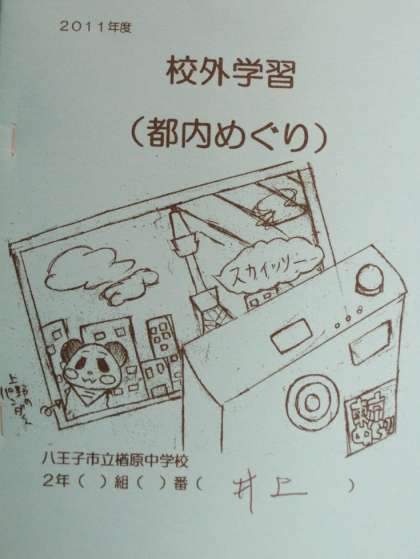 2011年度
校外学習
(都内めぐり)
スカイツリー
上野のパンダくん
八王子市立楢原中学校
2年( )組( )番( 井上 )